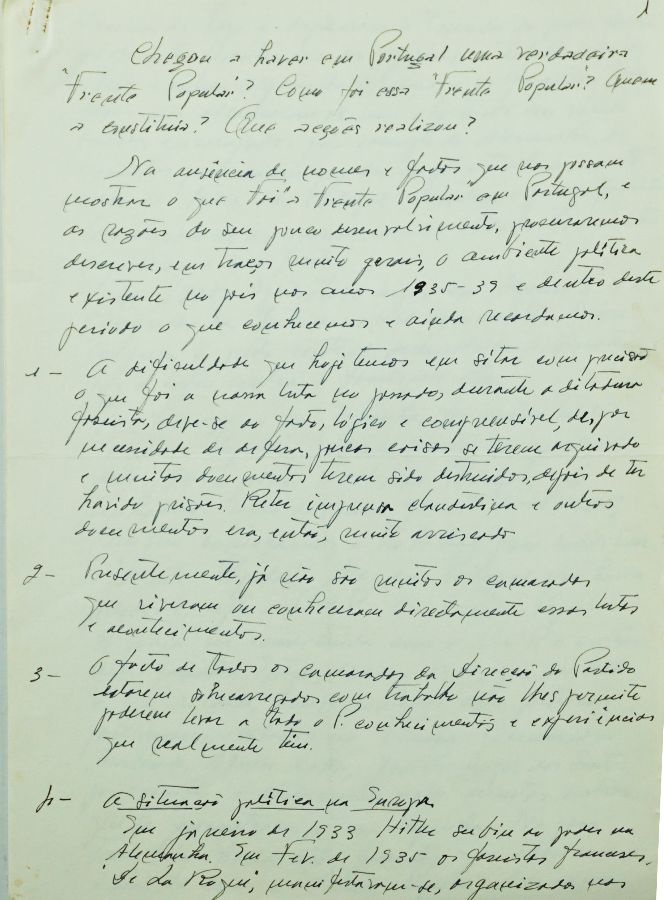 1
Chegou a haver em Portugal uma verdadeira
"Frente Popular"? Como foi essa "Frente Popular"? Quem
a constituia? Que acções realizou?
Na ausência de nomes e factos que nos possam
mostrar o que "foi" a Frente Popular em Portugal, e
as razões do seu pouco desenvolvimento, procuraremos
descrever, em traços muito gerais, o ambiente político
existente no país nos anos 1935-39 e dentro deste
periodo o que conhecemos e ainda recordamos.
1- A dificuldade que hoje temos em sitar com precisão
o que foi a nossa luta no passado, durante a ditadura
fascista, deve-se ao facto, lógico e compreensível, de, por
necessidade de defesa, poucas coisas se terem arquivado
e muitos documentos terem sido destruidos, depois de ter
havido prisões. Reter imprensa clandestina e outros
documentos era, então, muito arriscado
2- Presentemente, já não são muitos os camaradas
que viveram ou conheceram directamente essas lutas
e acontecimentos.
3- O facto de todos os camaradas da Direcção do Partido
estarem sobrecarregados com trabalho não lhes permite
poderem levar a todo o P. conhecimentos e experiências
que realmente têm.
A situação política na Europa
Em janeiro de 1933 Hitler subiu ao poder na
Alemanha. Em Fev. de 1935 os fascistas franceses,
"De La Roque", manifestaram-se, organizados nos